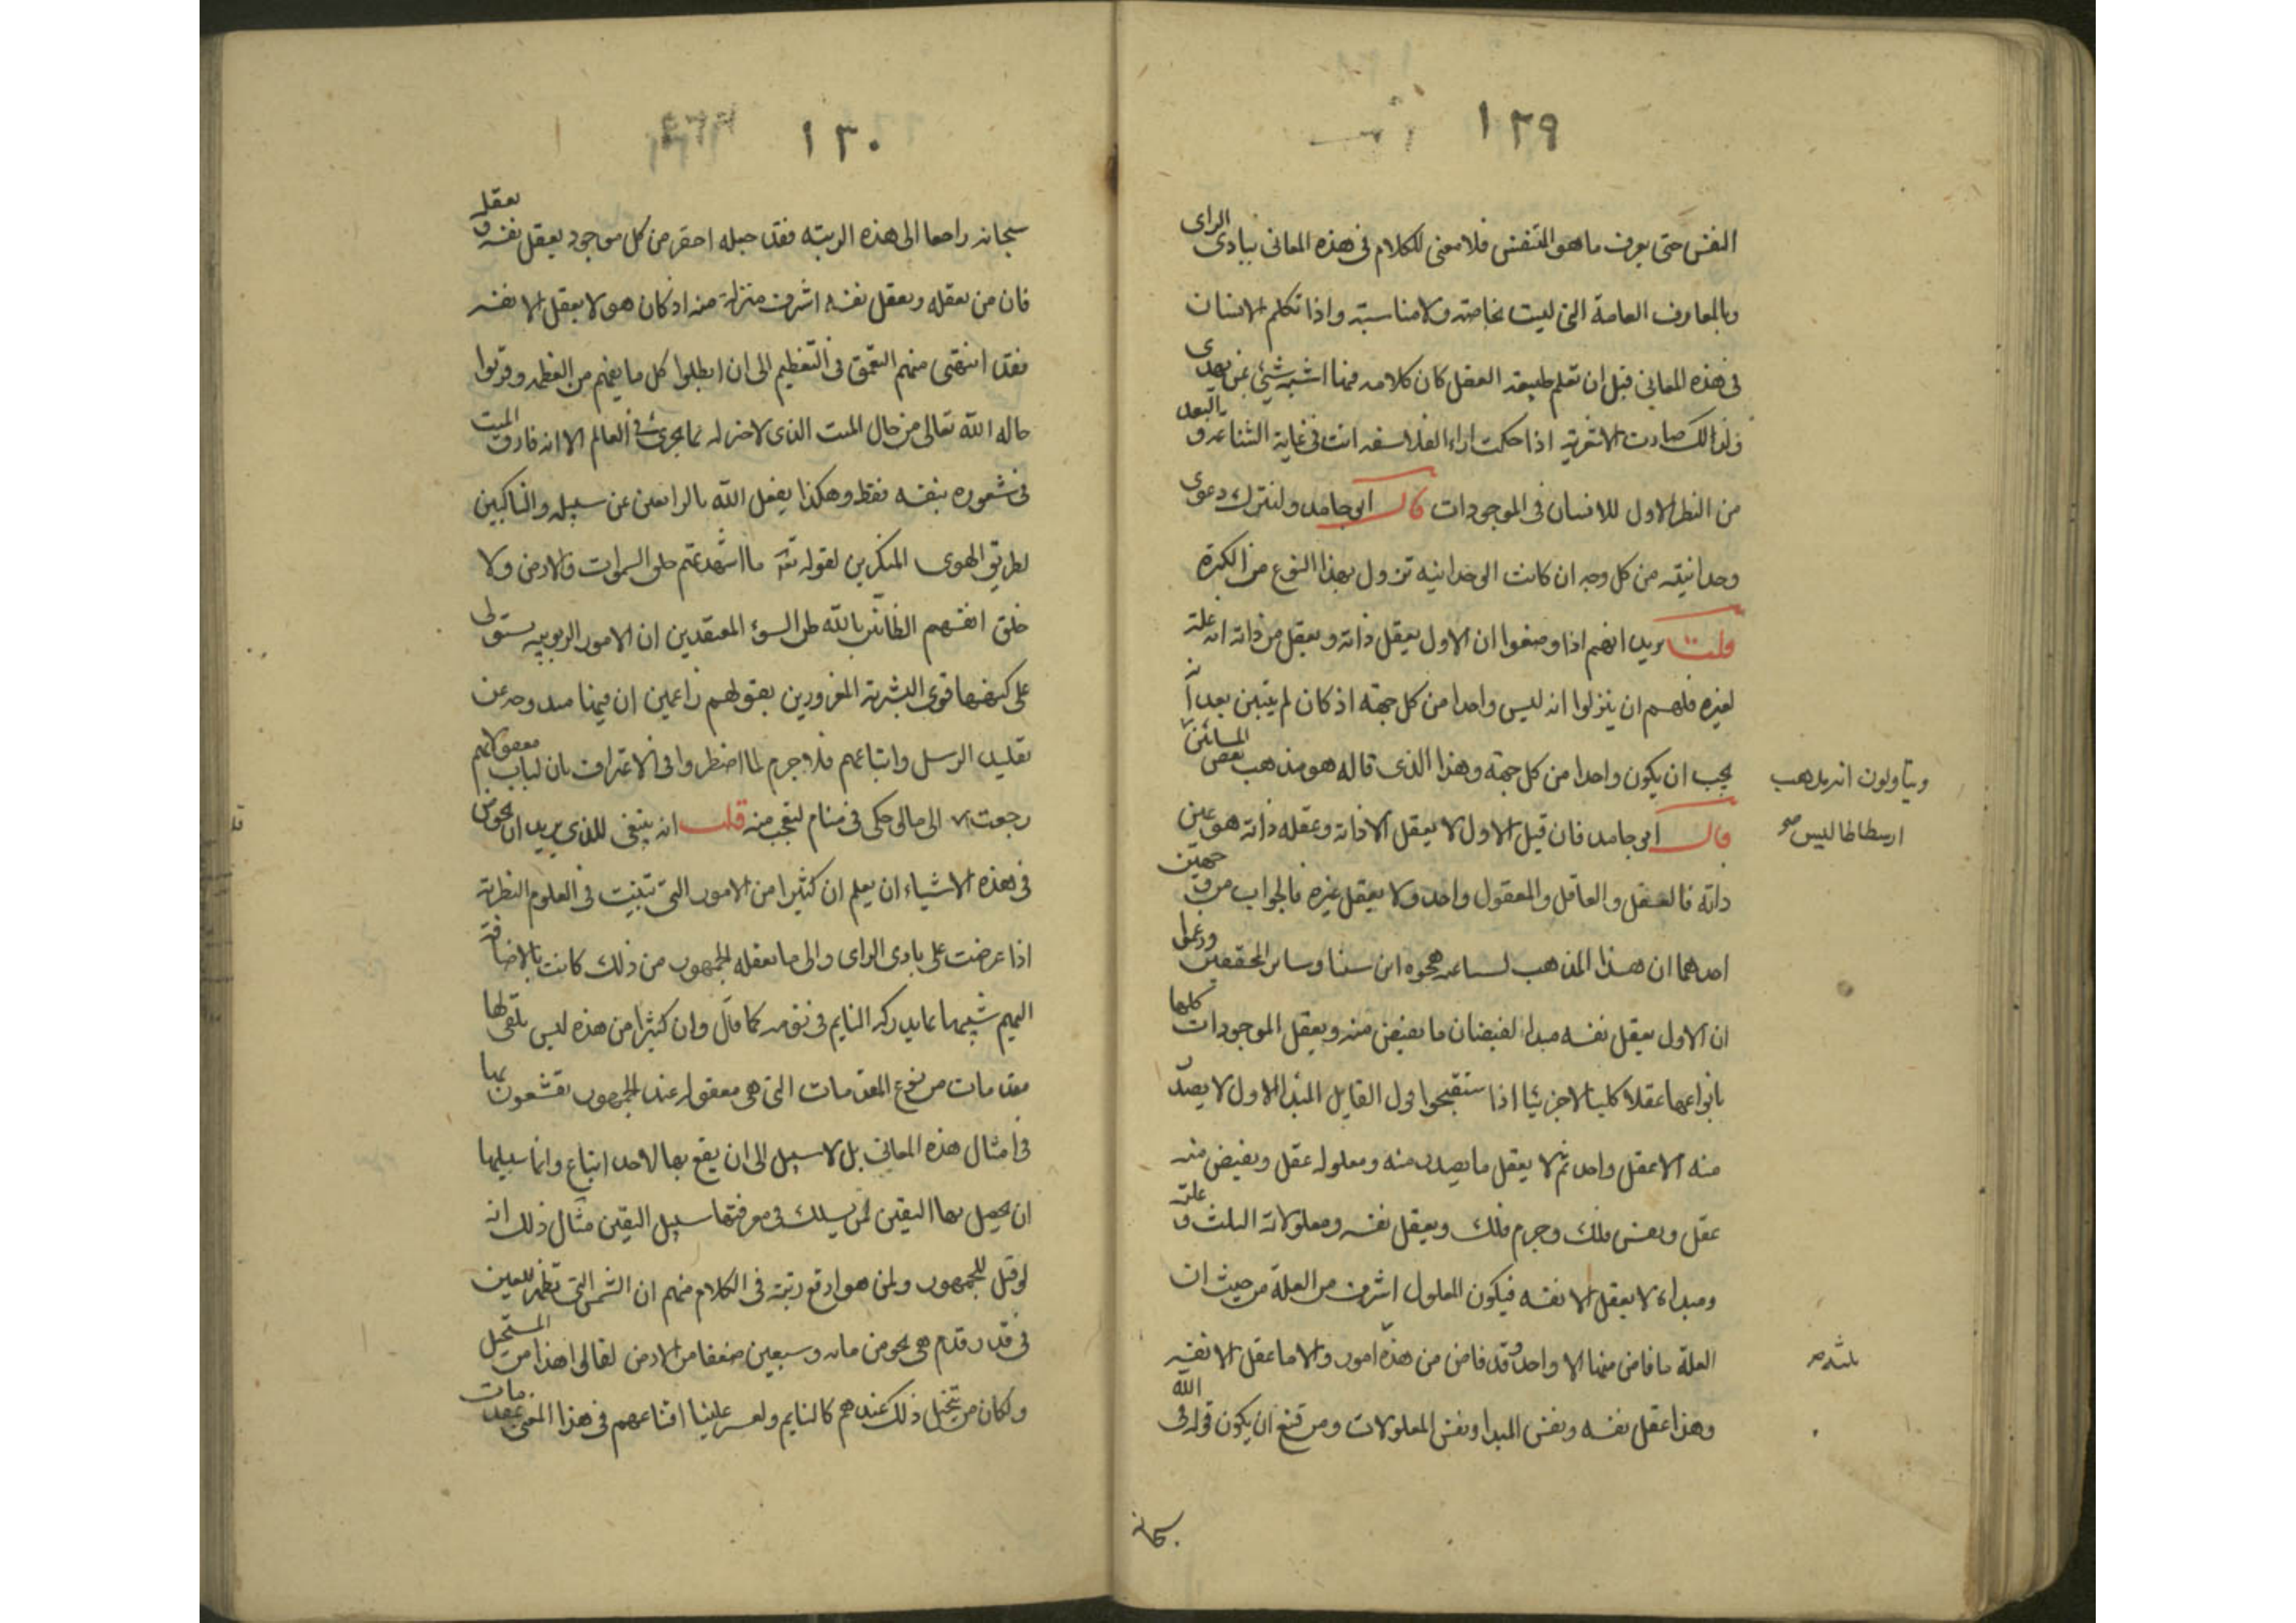 ١٢٩
النفس حتى يعرف ما هو المتنفس فلا معنى للكلام فى هذه المعانى ببادى الراى
وبالمعارف العامة التى ليست بخاصة ولا مناسبة واذا تكلم الانسان
فى هذه المعانى قبل ان تعلم طبيعة العقل كان كلامه فيها اشبه شيئ بمن يهدى
ولذالك صارت الاشعرية اذا حكت اراء الفلاسفه اتت فى غاية الشناعه و بالبعد
من النظر الاول للانسان فى الموجودات قال ابو حامد ولنترك دعوى
وحدانيته من كل وجه ان كانت الوحدانيه تزول بهذا النوع من الكثرة
قلت يريد انهم اذا وضعوا ان الاول يعقل ذاته ويعقل من ذاته انه علة
لغيره فلهم ان ينزلوا انه ليس واحدا من كل جهته اذ كان لم يتبين بعد انه
يجب ان يكون واحدا من كل جهة وهذا الذى قاله هو مذهب بعض المشائين
ويتاولون انه مذهب
ارسطاطاليس صح
قال ابو حامد فان قيل الاول لا يعقل الا ذاته وعقله ذاته هو عين
ذاته فالعقل والعاقل والمعقول واحد ولا يعقل غيره فالجواب من وجهين
احدهما ان هذا المذهب لشناعه هجره ابن سينا وساير المحققين وزعموا
ان الاول يعقل نفسه مبدا لفيضان ما يفيض منه ويعقل الموجودات كلها
بانواعها عقلا كليا لا جزئيا اذا ستقبحوا قول القايل المبدا الاول لا يصدر
منه الا عقل واحد ثم لا يعقل ما يصدر منه ومعلوله عقل ويفيض منه
عقل ونفس فلك وجرم فلك ويعقل نفسه ومعلولاته الثلث و علته
ومبداه لا يعقل الا نفسه فيكون المعلول اشرف من العلة من حيث ان
العلة ما فاض منها الا واحد وقد فاض من هذه امور والاما عقل الا نفسه
ثلثه صح
وهذا عقل نفسه ونفس المبدا ونفس المعلولات ومن قنع ان يكون قوله فى الله
سبحانه
١٣٠
سبحانه راجعا الى هذه الرتبته فقد جعله احقر من كل موجود يعقل نفسه و يعقله
فان من يعقله ويعقل نفسه اشرف منزلة منه اذ كان هو لا يعقل الا نفسه
فقد انتهى منهم التعمق فى التعظيم الى ان ابطلوا كل ما يفهم من العظمه وقربوا
حاله الله تعالى من حال الميت الذى لا خبر له بما يجرى فى العالم الا انه فارق الميت
فى شعوره بنفسه فقط وهكذا يفعل الله بالزايغين عن سبيله والناكبين
لطريق الهوى المنكرين لقوله تعالى ما اشهدتهم خلق السموات والارض ولا
خلق انفسهم الظانين بالله ظن السوء المعتقدين ان الامور الربوبيه يستولى
على كنهها قوى البشرية المغرورين بعقولهم زاعمين ان فيها مندوحه عن
تقليد الرسل واتباعهم فلا جرم لما اضطروا فى الاعتراف بان لباب معقولاتهم
رجعت الى ما لو حكى فى منام لتعجب منه قلت انه ينبغى للذى يريد ان يخوض
فى هذه الاشياء ان يعلم ان كثيرا من الامور التى تثبت فى العلوم النظرية
اذا عرضت على بادى الراى والى ما يعقله الجمهور من ذلك كانت بالاضافة
اليهم شبيها بما يدركه النايم فى نومه كما قال وان كثيرا من هذه ليس يلقى لها
مقدمات من نوع المقدمات التى هى معقوله عند الجمهور يقنعون بها
فى امثال هذه المعانى بل لا سبيل الى ان يقع بها لاحد اقناع وانما سبيلها
ان يحصل بها اليقين لمن يسلك فى معرفتها سبيل اليقين مثال ذلك انه
لو قيل للجمهور ولمن هو ارفع رتبة فى الكلام منهم ان الشمس التى تظهر للعين
فى قدر قدم هى نحو من مائه وسبعين ضعفا من الارض لقالوا هذا من المستحيل
ولكان من يتخيل ذلك عندهم كالنايم ولعسر علينا اقناعهم فى هذا المعنى بمقدمات